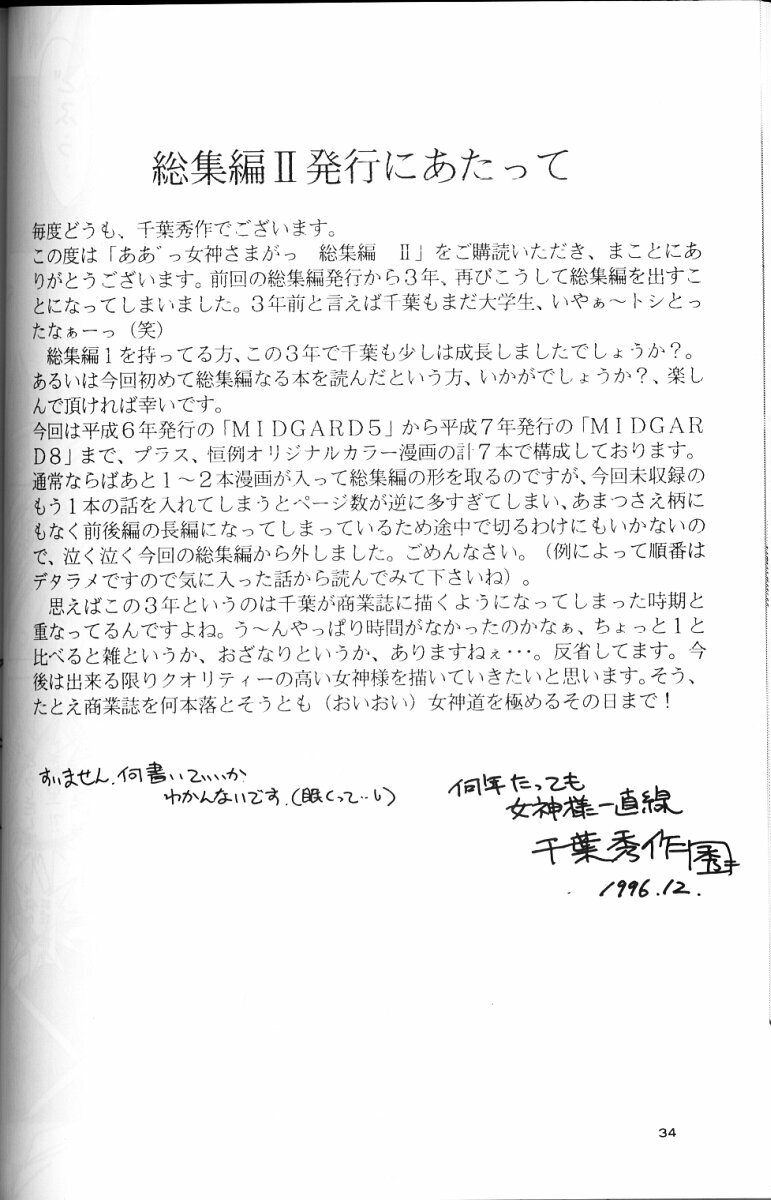 総集編Ⅱ発行にあたって
毎度どうも、千葉秀作でございます。
この度は「ああ゛っ女神さまがっ　総集編　Ⅱ」をご購読いただき、まことにあ
りがとうございます。前回の総集編発行から３年、再びこうして総集編を出すこ
とになってしまいました。３年前と言えば千葉もまだ大学生、いやぁ～トシとっ
たなぁーっ（笑）
　総集編１を持ってる方、この３年で千葉も少しは成長しましたでしょうか？。
あるいは今回初めて総集編なる本を読んだという方、いかがでしょうか？、楽し
んで頂ければ幸いです。
今回は平成６年発行の「ＭＩＤＧＡＲＤ５」から平成７年発行の「ＭＩＤＧＡＲ
Ｄ８」まで、プラス、恒例オリジナルカラー漫画の計７本で構成しております。
通常ならばあと１～２本漫画が入って総集編の形を取るのですが、今回未収録の
もう１本の話を入れてしまうとページ数が逆に多すぎてしまい、あまつさえ柄に
もなく前後編の長編になってしまっているため途中で切るわけにもいかないの
で、泣く泣く今回の総集編から外しました。ごめんなさい。（例によって順番は
デタラメですので気に入った話から読んでみて下さいね）。
　思えばこの３年というのは千葉が商業誌に描くようになってしまった時期と
重なってるんですよね。う～んやっぱり時間がなかったのかなぁ、ちょっと１と
比べると雑というか、おざなりというか、ありますねぇ･･･。反省してます。今
後は出来る限りクオリティーの高い女神様を描いていきたいと思います。そう、
たとえ商業誌を何本落とそうとも（おいおい）女神道を極めるその日まで！
すいません。何書いていいか
わかんないです。（眠くって‥い）
何年たっても
女神様一直線
千葉秀作
1996.12.
34